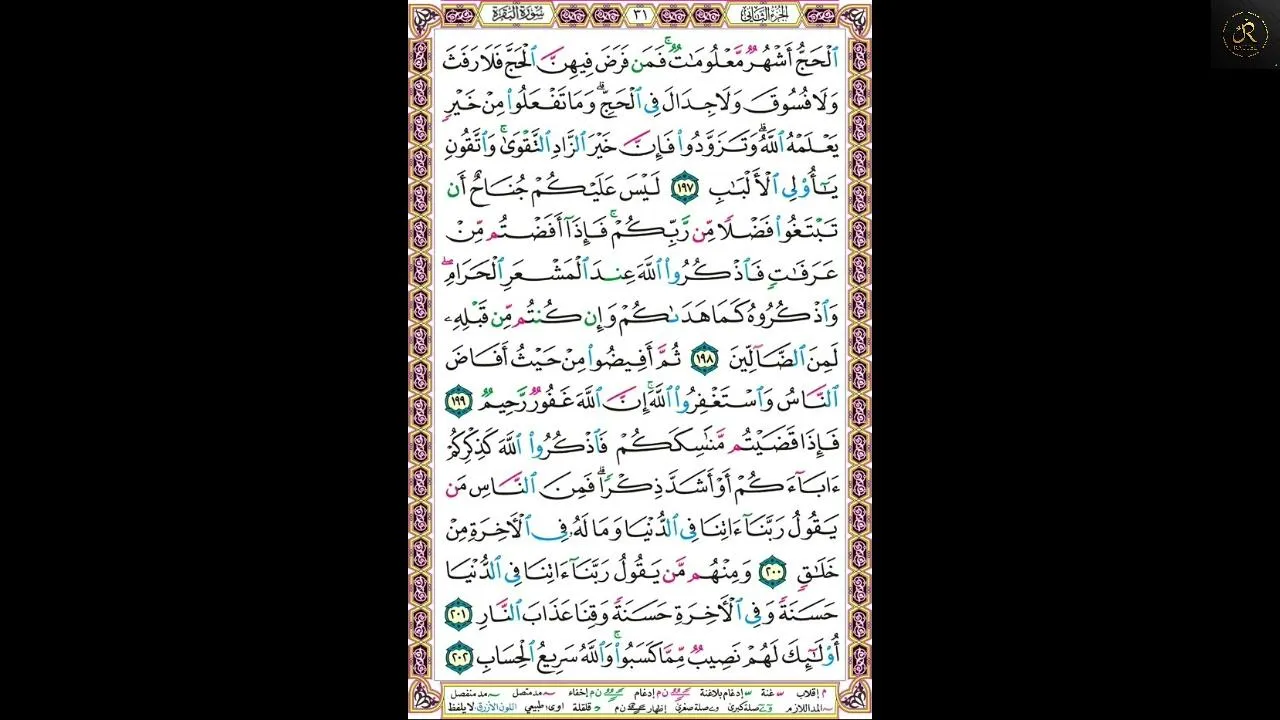 الجزء الثاني ٣١ سورة البقرة
ٱلْحَجُّ أَشْهُرٌ مَّعْلُومَٰتٌ ۚ فَمَن فَرَضَ فِيهِنَّ ٱلْحَجَّ فَلَا رَفَثَ
وَلَا فُسُوقَ وَلَا جِدَالَ فِى ٱلْحَجِّ ۗ وَمَا تَفْعَلُوا۟ مِنْ خَيْرٍ
يَعْلَمْهُ ٱللَّهُ ۗ وَتَزَوَّدُوا۟ فَإِنَّ خَيْرَ ٱلزَّادِ ٱلتَّقْوَىٰ ۚ وَٱتَّقُونِ
يَٰٓأُو۟لِى ٱلْأَلْبَٰبِ ١٩٧ لَيْسَ عَلَيْكُمْ جُنَاحٌ أَن
تَبْتَغُوا۟ فَضْلًا مِّن رَّبِّكُمْ ۚ فَإِذَآ أَفَضْتُم مِّنْ
عَرَفَٰتٍ فَٱذْكُرُوا۟ ٱللَّهَ عِندَ ٱلْمَشْعَرِ ٱلْحَرَامِ ۖ
وَٱذْكُرُوهُ كَمَا هَدَىٰكُمْ وَإِن كُنتُم مِّن قَبْلِهِۦ
لَمِنَ ٱلضَّآلِّينَ ١٩٨ ثُمَّ أَفِيضُوا۟ مِنْ حَيْثُ أَفَاضَ
ٱلنَّاسُ وَٱسْتَغْفِرُوا۟ ٱللَّهَ ۚ إِنَّ ٱللَّهَ غَفُورٌ رَّحِيمٌ ١٩٩
فَإِذَا قَضَيْتُم مَّنَٰسِكَكُمْ فَٱذْكُرُوا۟ ٱللَّهَ كَذِكْرِكُمْ
ءَابَآءَكُمْ أَوْ أَشَدَّ ذِكْرًا ۗ فَمِنَ ٱلنَّاسِ مَن
يَقُولُ رَبَّنَآ ءَاتِنَا فِى ٱلدُّنْيَا وَمَا لَهُۥ فِى ٱلْءَاخِرَةِ مِنْ
خَلَٰقٍ ٢٠٠ وَمِنْهُم مَّن يَقُولُ رَبَّنَآ ءَاتِنَا فِى ٱلدُّنْيَا
حَسَنَةً وَفِى ٱلْءَاخِرَةِ حَسَنَةً وَقِنَا عَذَابَ ٱلنَّارِ ٢٠١
أُو۟لَٰٓئِكَ لَهُمْ نَصِيبٌ مِّمَّا كَسَبُوا۟ ۚ وَٱللَّهُ سَرِيعُ ٱلْحِسَابِ ٢٠٢
م إقلاب غنة إدغام بلاغنة ن م إدغام ن م إخفاء مد متصل مد منفصل
المد اللازم صلة كبرى صلة صغرى إظهار ن م قلقلة اوى طبيعي اللون الأزرق لا يلفظ